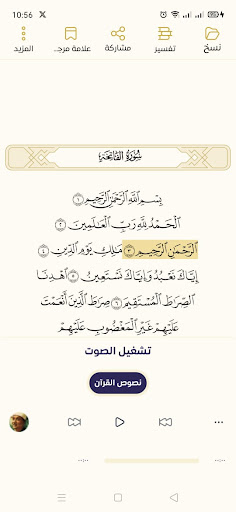 10:56
نسخ
تفسير
مشاركة
علامة مرجـ...
المزيد
سُورَةُ الفَاتِحَةِ
بِسْمِ اللَّهِ الرَّحْمَٰنِ الرَّحِيمِ ١
الْحَمْدُ لِلَّهِ رَبِّ الْعَالَمِينَ ٢
الرَّحْمَٰنِ الرَّحِيمِ ٣ مَالِكِ يَوْمِ الدِّينِ ٤
إِيَّاكَ نَعْبُدُ وَإِيَّاكَ نَسْتَعِينُ ٥ اهْدِنَا
الصِّرَاطَ الْمُسْتَقِيمَ ٦ صِرَاطَ الَّذِينَ أَنْعَمْتَ
عَلَيْهِمْ غَيْرِ الْمَغْضُوبِ عَلَيْهِمْ
تشغيل الصوت
نصوص القرآن
--:--
--:--